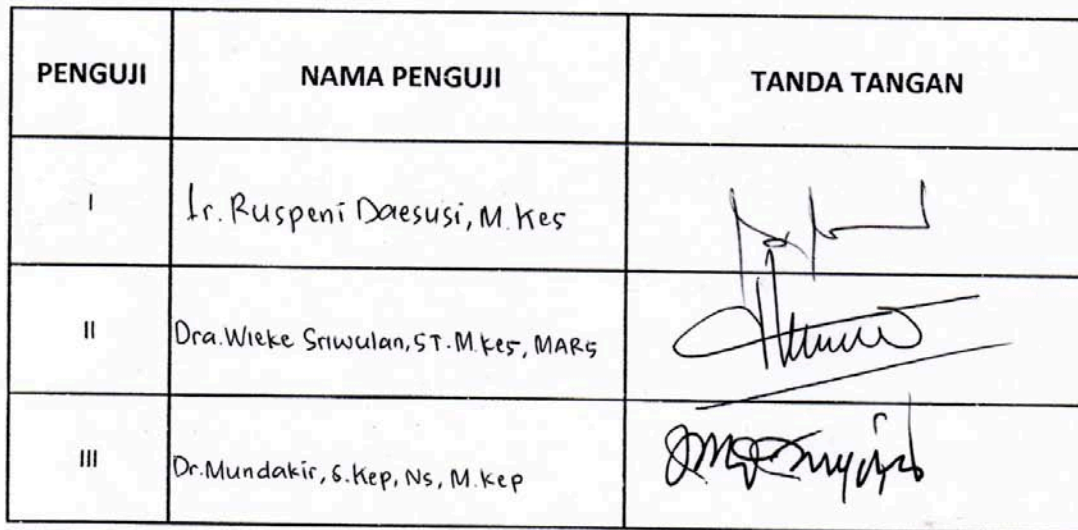 PENGUJI NAMA PENGUJI TANDA TANGAN
I Ir. Ruspeni Daesusi, M. Kes
II Dra. Wieke Sriwulan, ST. M. Kes, MARS
III Dr. Mundakir, S. Kep, Ns, M. Kep